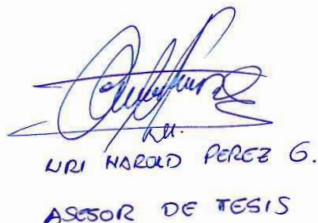 URI HAROLD PEREZ G.
ASESOR DE TESIS